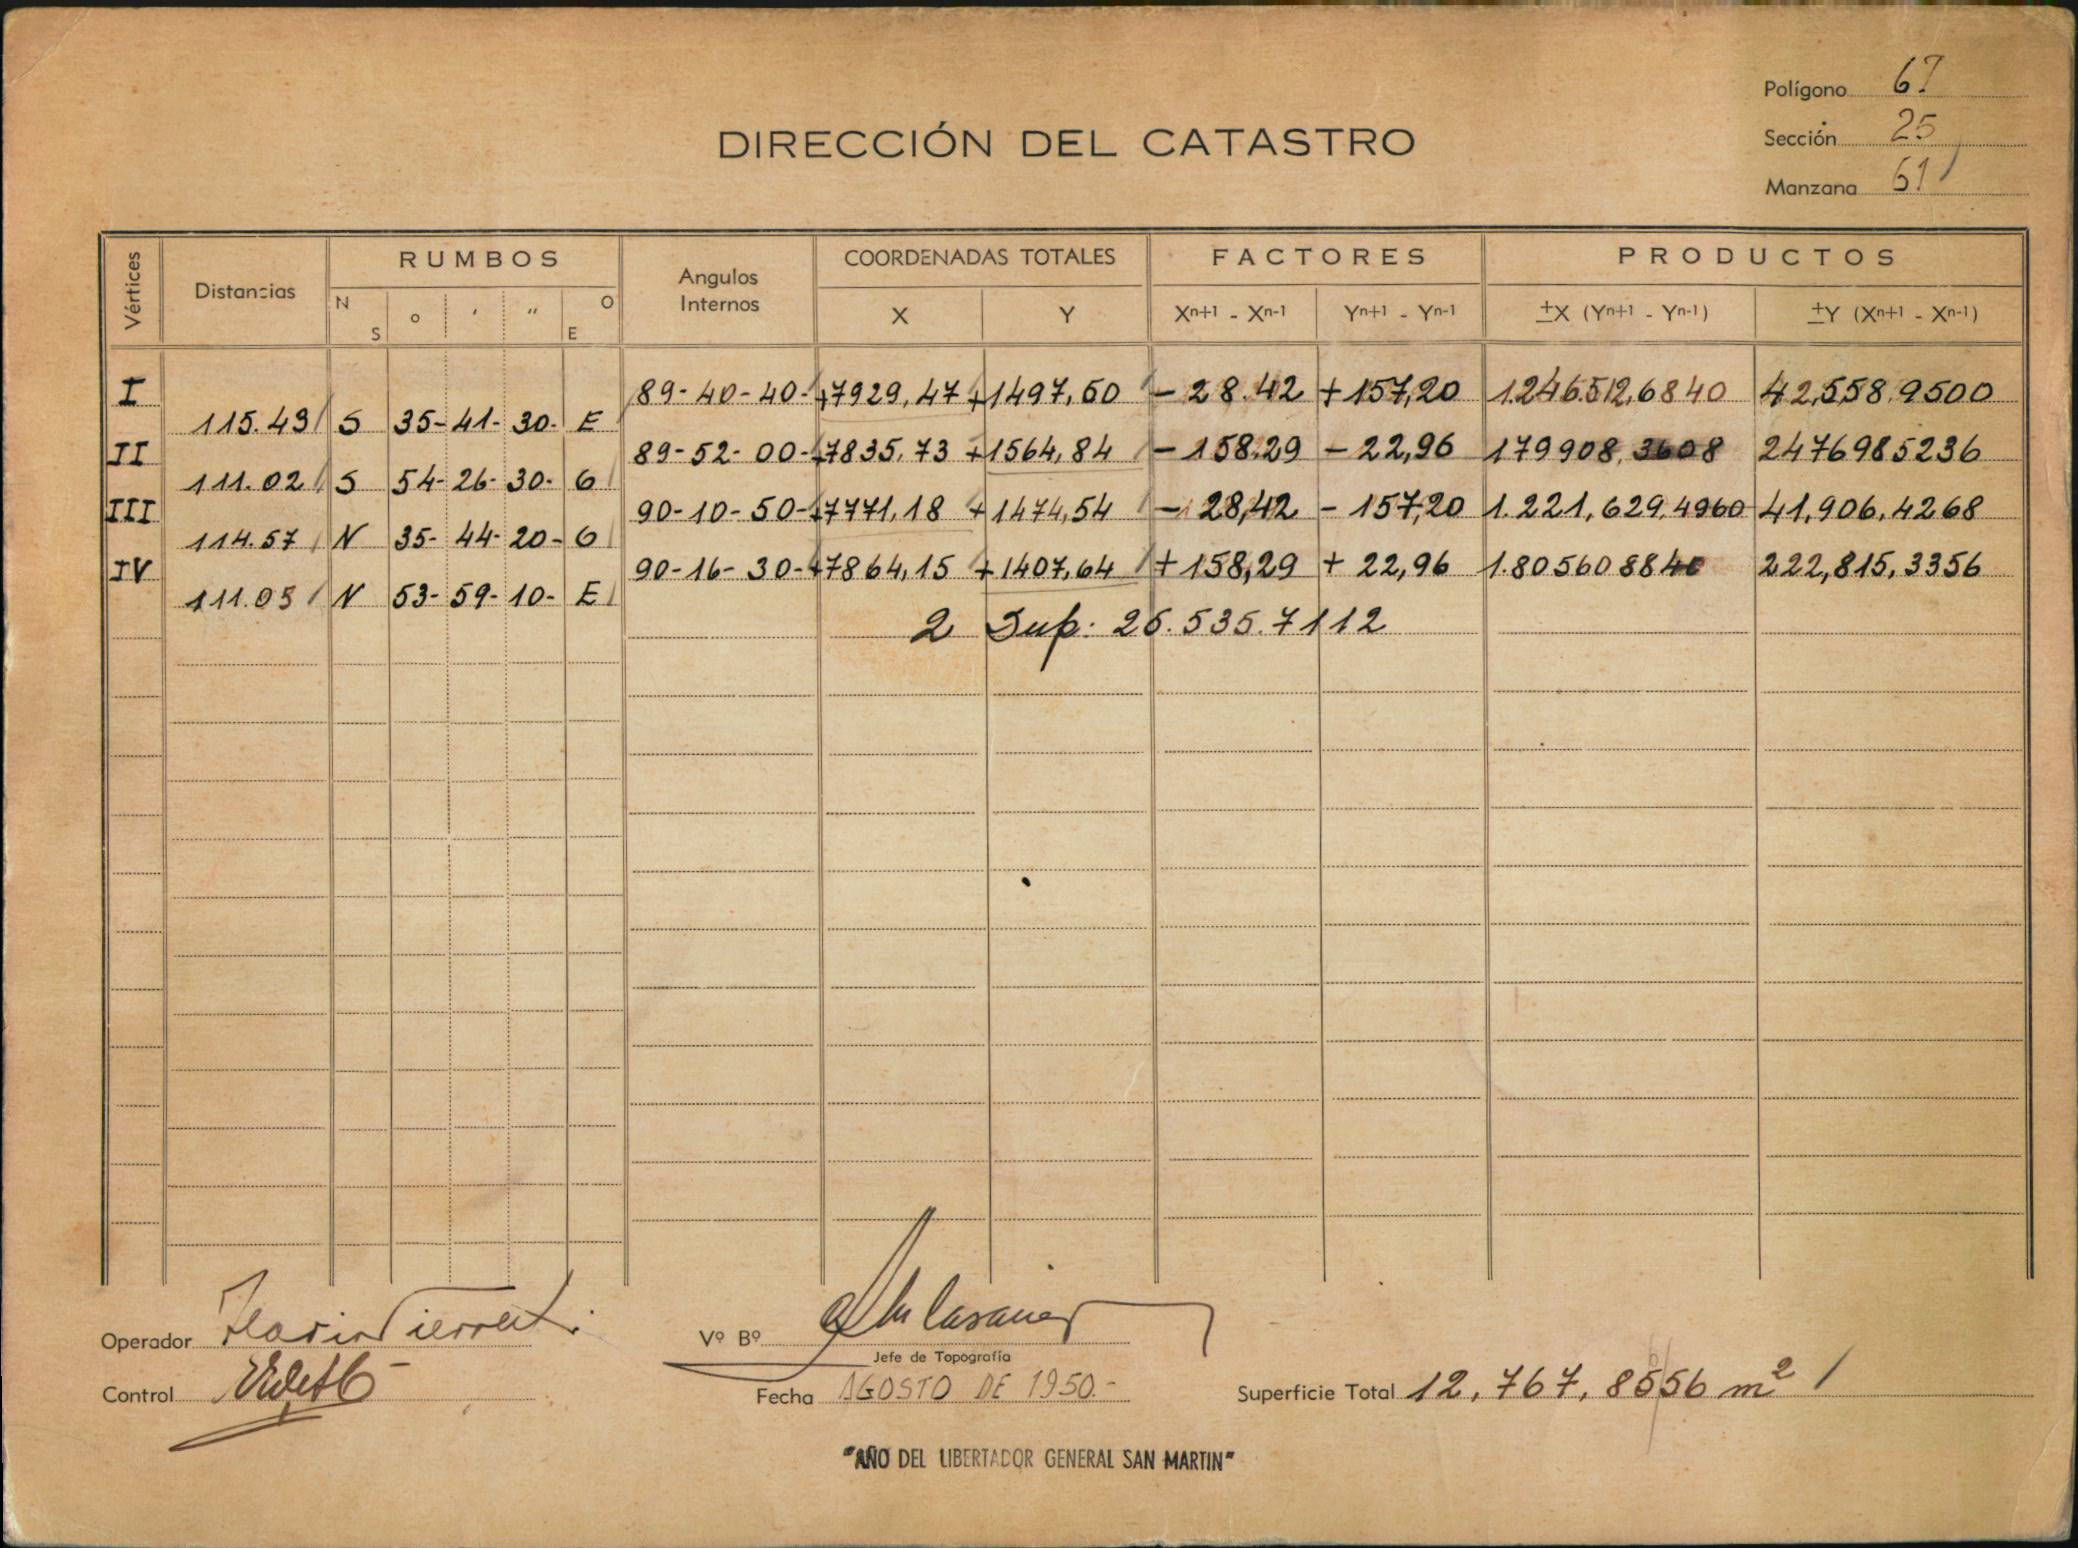 Polígono 67
Sección 25
Manzana 61
DIRECCIÓN DEL CATASTRO
Vértices Distancias RUMBOS Angulos Internos COORDENADAS TOTALES FACTORES PRODUCTOS
N S o ' " O E X Y Xn+1 - Xn-1 Yn+1 - Yn-1 ±X (Yn+1 - Yn-1) ±Y (Xn+1 - Xn-1)
I 89-40-40- +7929,47 +1497,60 - 28.42 + 157,20 1.246.512,6840 42,558.9500
115.43 S 35- 41- 30- E
II 89-52-00- +7835,73 +1564,84 - 158.29 - 22,96 179908,3608 2476985236
111.02 S 54- 26- 30- O
III 90-10-50- +7771,18 +1474,54 - 28,42 - 157,20 1.221,629,4960 41,906.4268
114.57 N 35- 44- 20- O
IV 90-16-30- +7864,15 +1407,64 + 158,29 + 22,96 1.805608840 222,815,3356
111.03 N 53- 59- 10- E
2 Sup: 25.535.7112
Operador
Vº Bº
Jefe de Topografía
Control
Fecha AGOSTO DE 1950.-
Superficie Total 12,767,8556 m²
"AÑO DEL LIBERTADOR GENERAL SAN MARTIN"